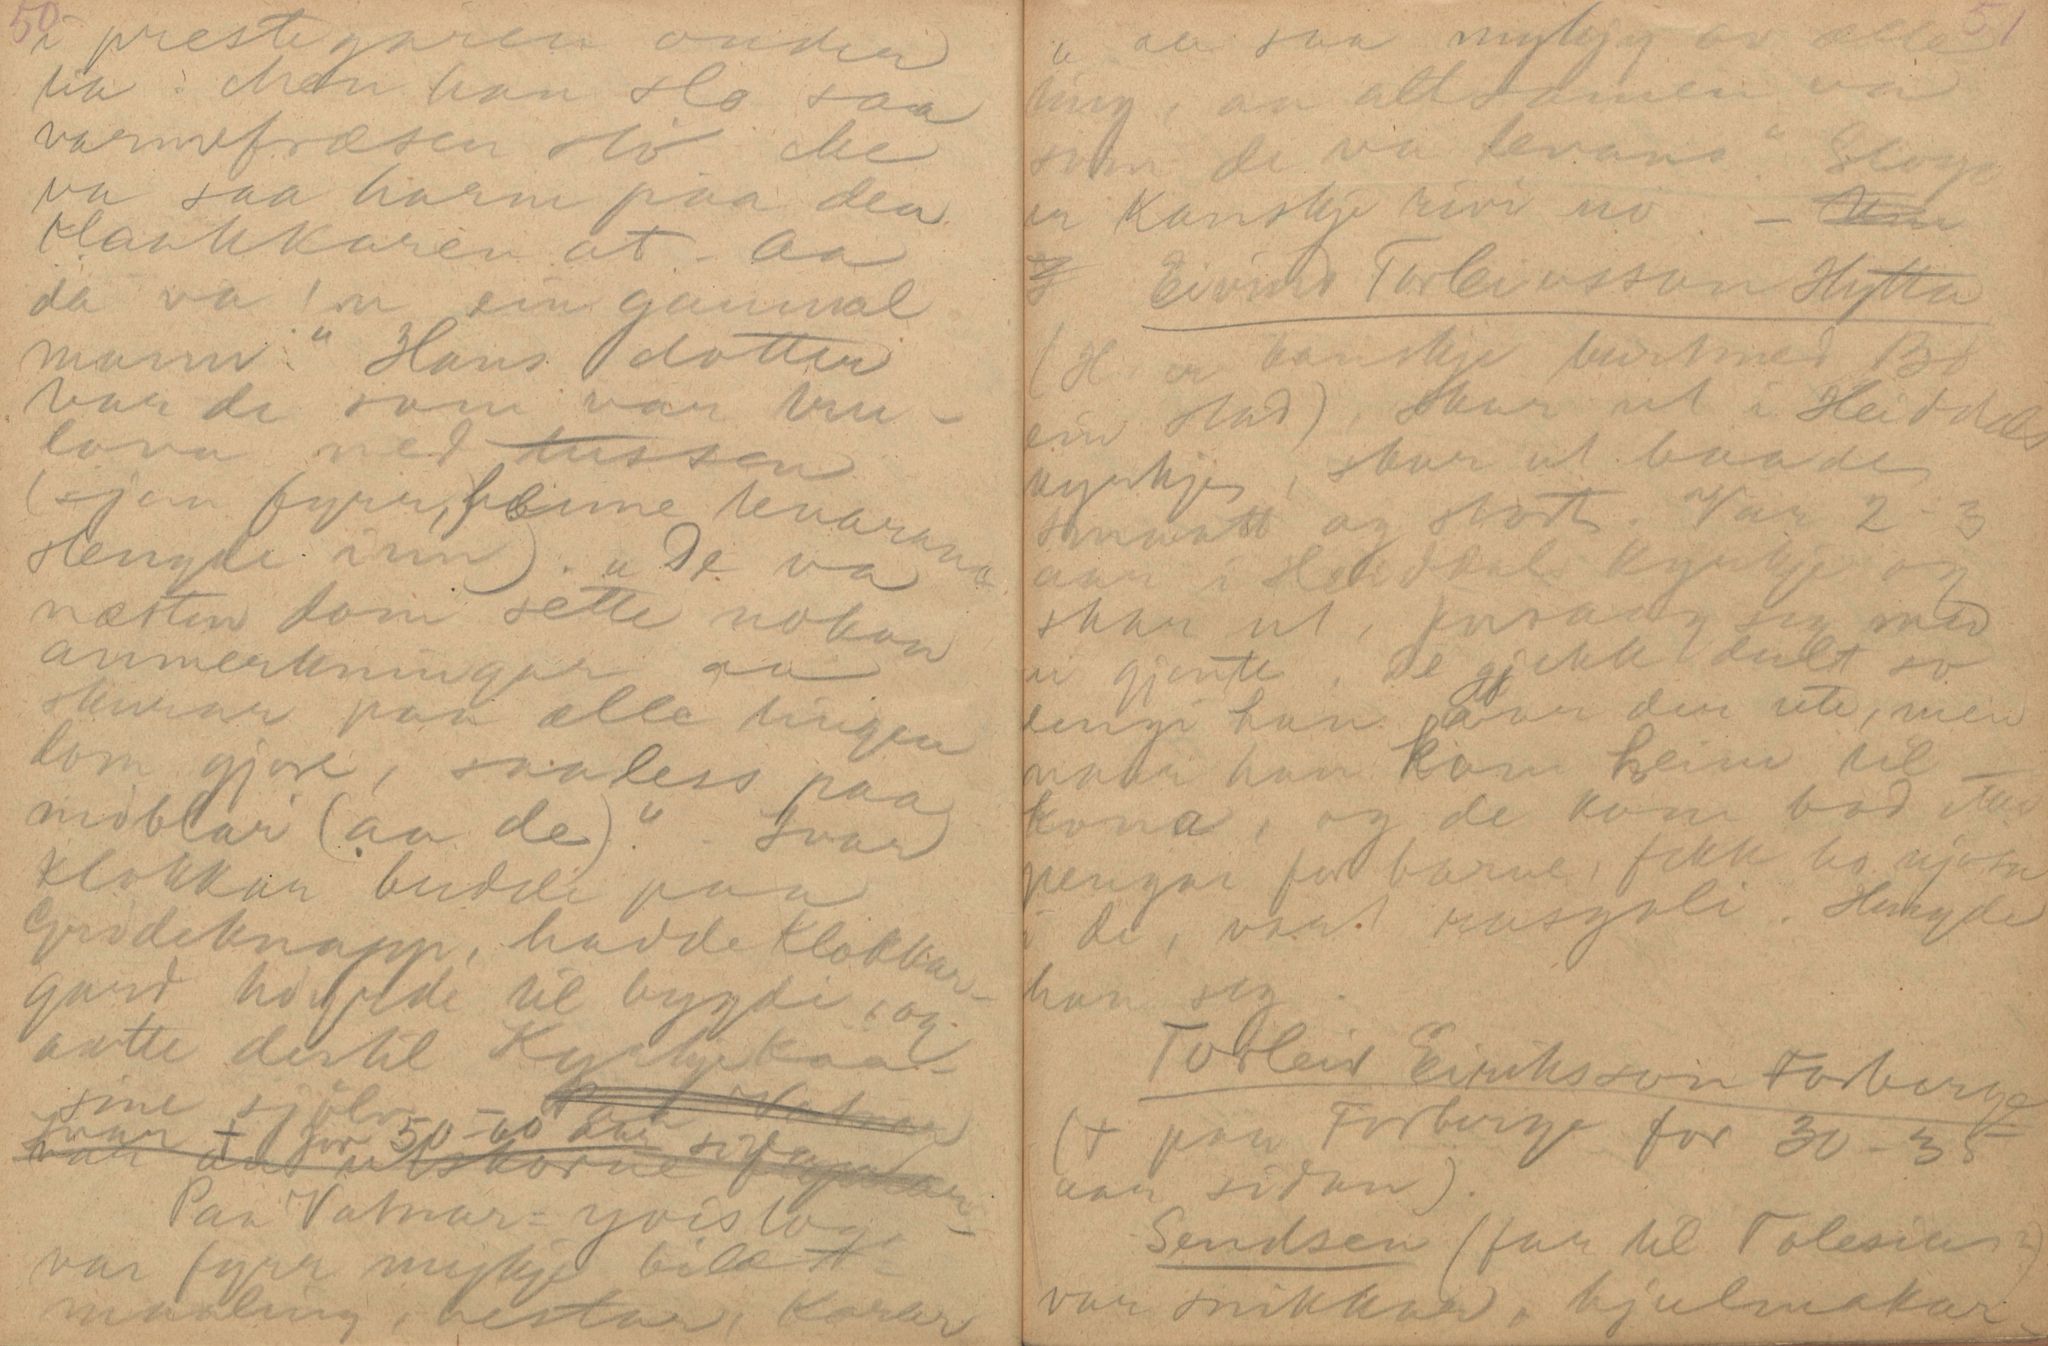 50
i prestegaren onder
ha: Men han slo saa
varmefræsen sto Me
va saa harm paa den
Haukkaren at - Aa
da va 'n ein gammal
mann." Hans dotter
var de som var tru-
lova med tussen
(sjan fyrr, heime tevarane
slengde inn). "De va
næsten dom sette nokon
anmerkningar aa
skurar paa alle tingen
dom gjore, saaless paa
möblar (aa de)." Ivar
Klokkar budde paa
Grödeknapp, hadde Klokkar-
gard höyrde til bygdi, og
aatte destil Kyrkjekaa-
sine sjölv
Ivar † for 50-60 aar sidan
var utskorne
Paa Vatnar= yvistog
var fyrr mykje bilæt-
maaling, hestar, Karar
51
" aa saa mykjy av alle
ting, aa altsamen va
som de va levans". Stoge
er Kanskje rivi no -
Eivind Torleivsson Hytta
(H. er kanskje burtmed Bö
ein stad), skar ut i Heiddals
kyrkje, skar ut baade
smaatt og stort. Var 2-3
aar i Heiddal Kyrkje og
skar ut, forsaag seg med
ei gjente. De gjekk dult so
lengi han var der ute, men
naar han kom heim til
kona, og de kom bod etter
pengar for barne, fekk ho njosn
i de, vart rasgali. Hengde
han seg.
Torleiv Eiriksson Forberge
(† paa Forberge for 30-35
aar sidan).
Sendsen (far til Tolesius?)
var snikkar, hjulmakar-